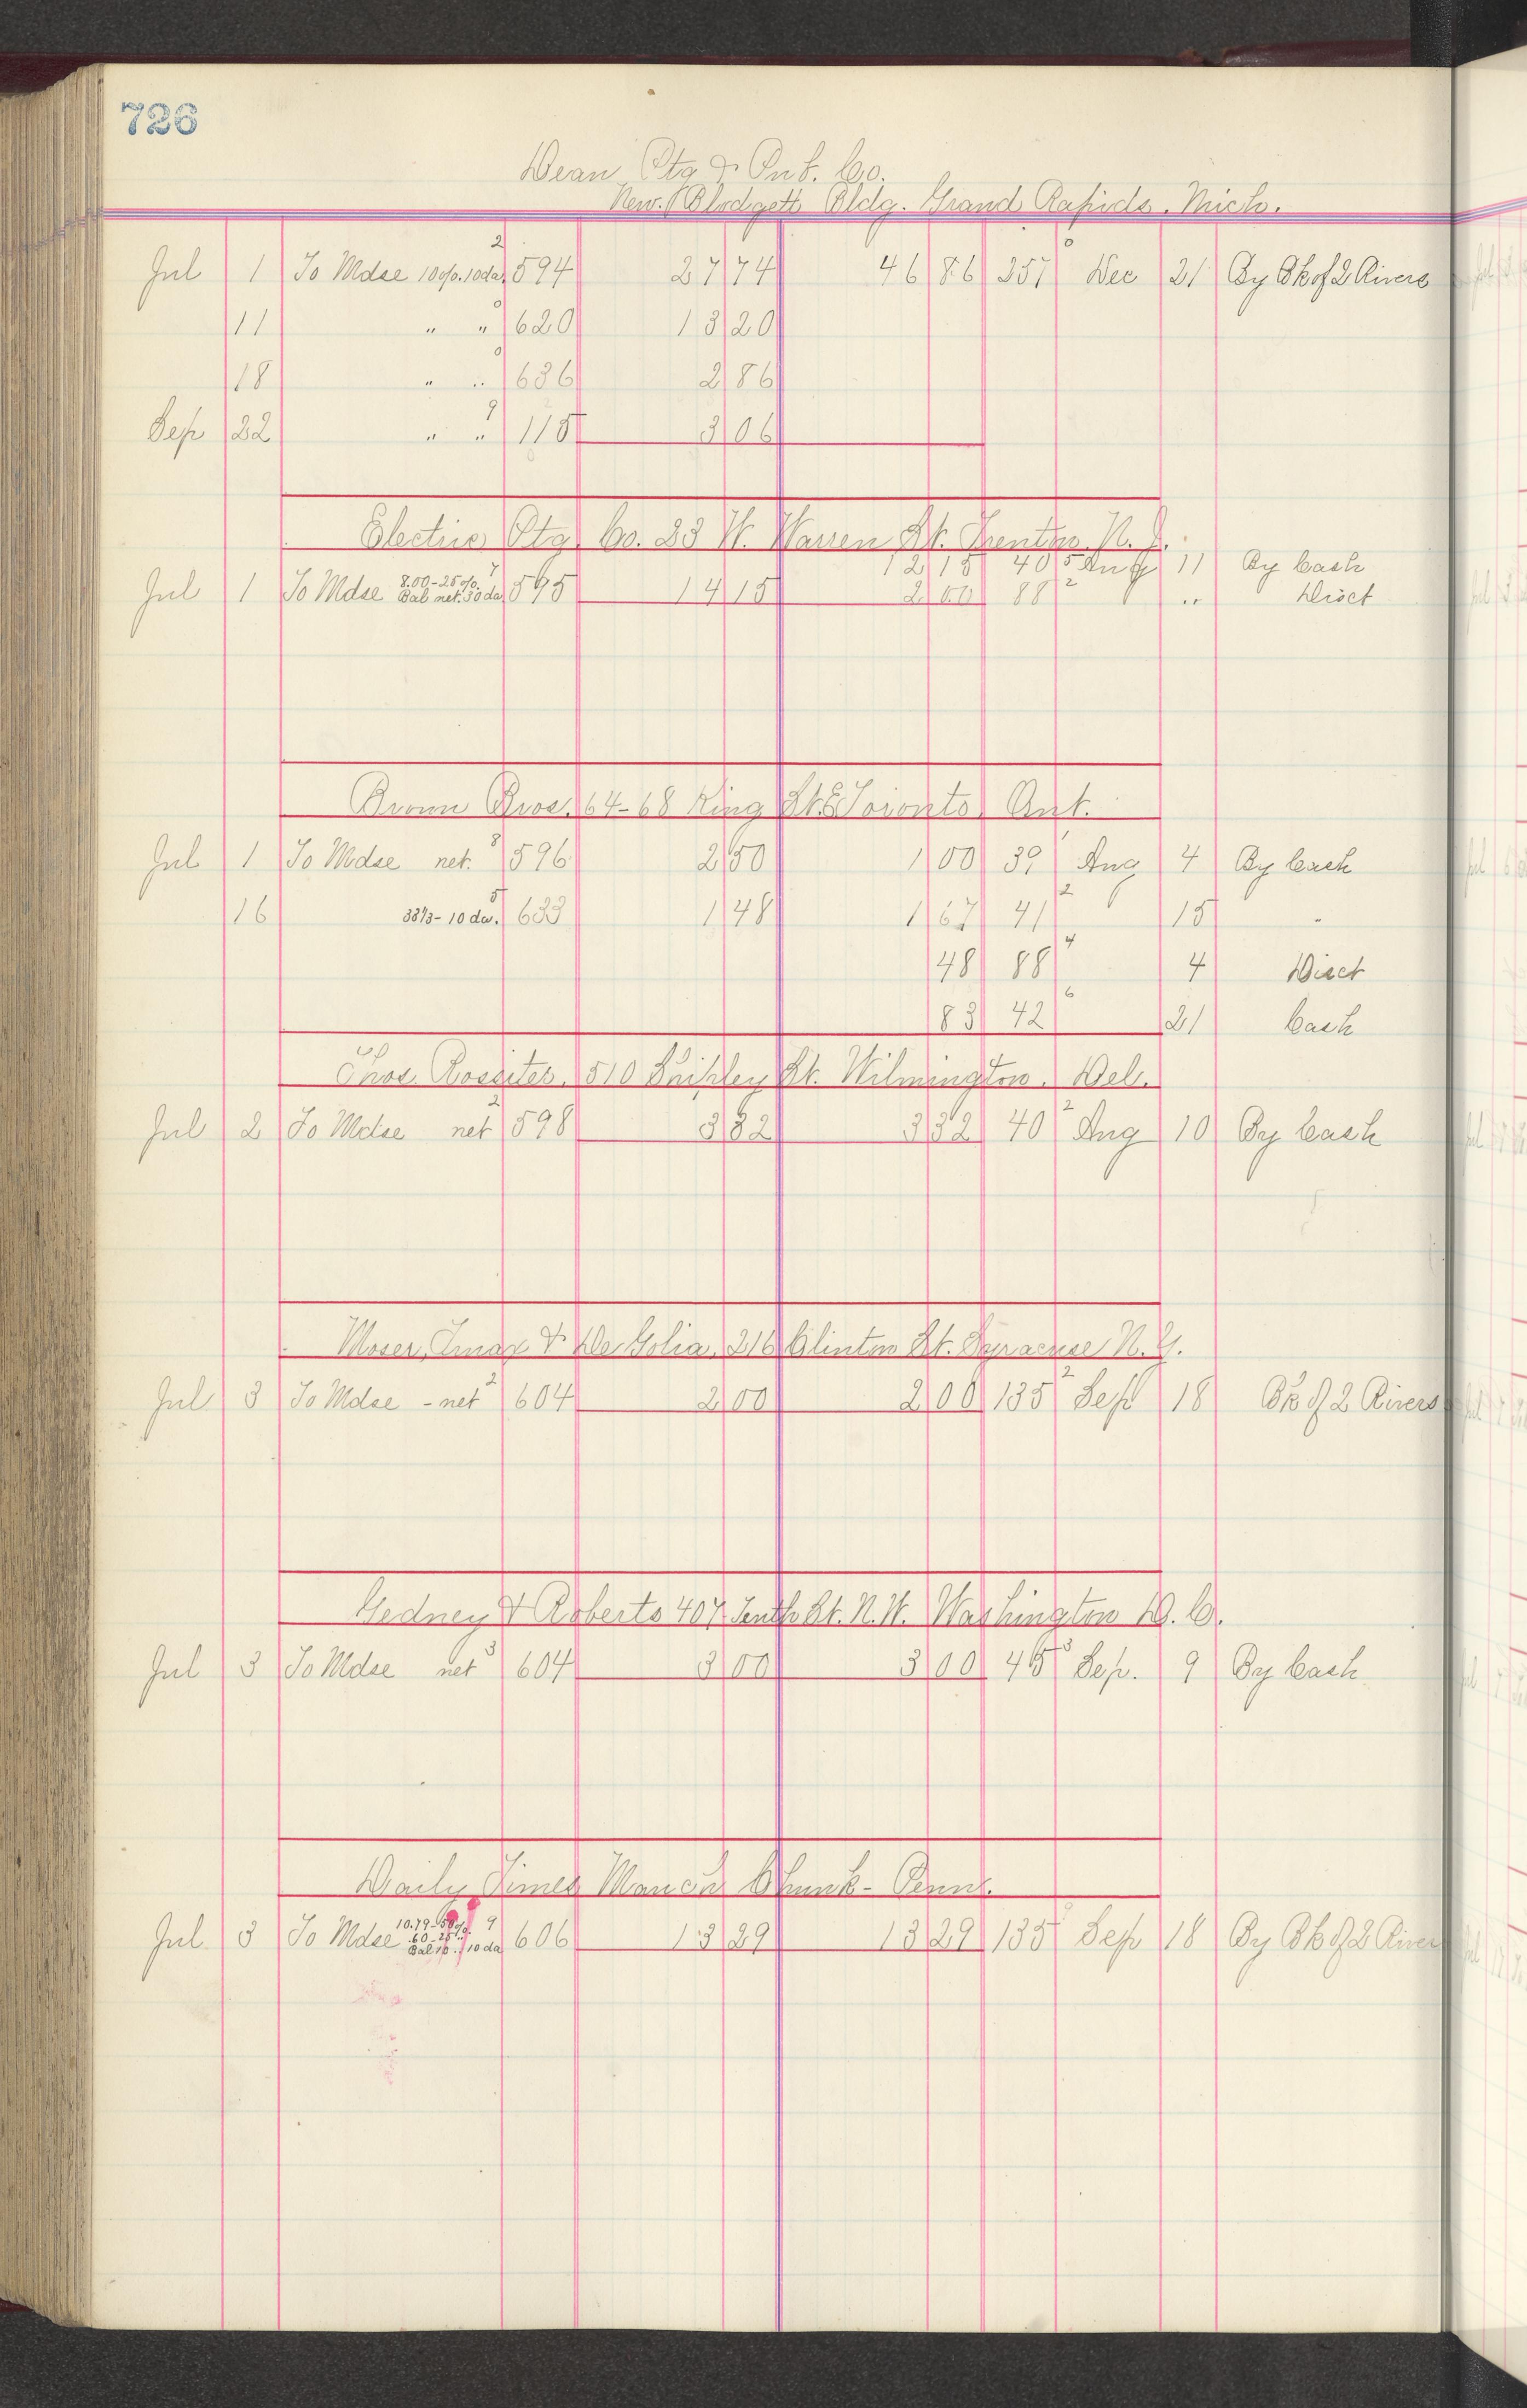 726
Dean Ptg & Pub. Co.
New. Blodgett Bldg. Grand Rapids, Mich.
Jul 1 To Mdse 10%.10da. 2 594 27 74 46 86 257 0 Dec 21 By Bk of 2 Rivers
11 " " 0 620 13 20
18 " " 0 636 2 86
Sep 22 " " 9 115 3 06
Electric Ptg Co. 23 W. Warren St. Trenton, N.J.
12 15 40 5 Aug 11 By Cash
Jul 1 To Mdse 8.00-25%. Bal net.30da 7 595 14 15 2 00 88 2 " Disct
Brown Bros. 64-68 King St. E Toronto, Ont.
Jul 1 To Mdse net. 8 596 2 50 1 00 39 1 Aug 4 By Cash
16 33⅓-10da. 5 633 1 48 1 67 41 2 15 "
48 88 4 4 Disct
83 42 6 21 Cash
Thos. Rossiter, 510 Shipley St. Wilmington, Del.
Jul 2 To Mdse net 2 598 3 32 3 32 40 2 Aug 10 By Cash
Moser, & De Golia, 216 Clinton St. Syracuse N.Y.
Jul 3 To Mdse - net 2 604 2 00 2 00 135 2 Sep 18 Bk of 2 Rivers
Gedney & Roberts 407 Tenth St. N.W. Washington D.C.
Jul 3 To Mdse net 3 604 3 00 3 00 45 3 Sep. 9 By Cash
Daily Times Mauch Chunk - Penn.
Jul 3 To Mdse 10.79-50%. .60-25". Bal 10.. 10da 9 606 13 29 13 29 135 Sep 18 By Bk of 2 River